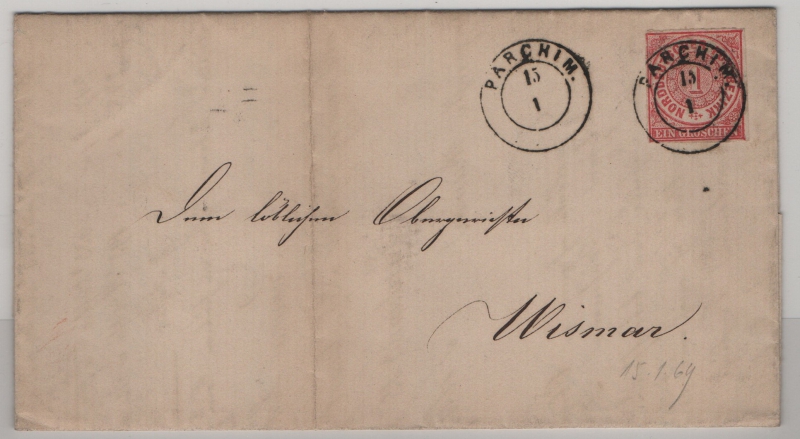 PARCHIM.
15
1
PARCHIM.
15
1
NORDD
1
EIN GROSCHEN
Dem löblichen Obergerichte
Wismar.
15.1.69